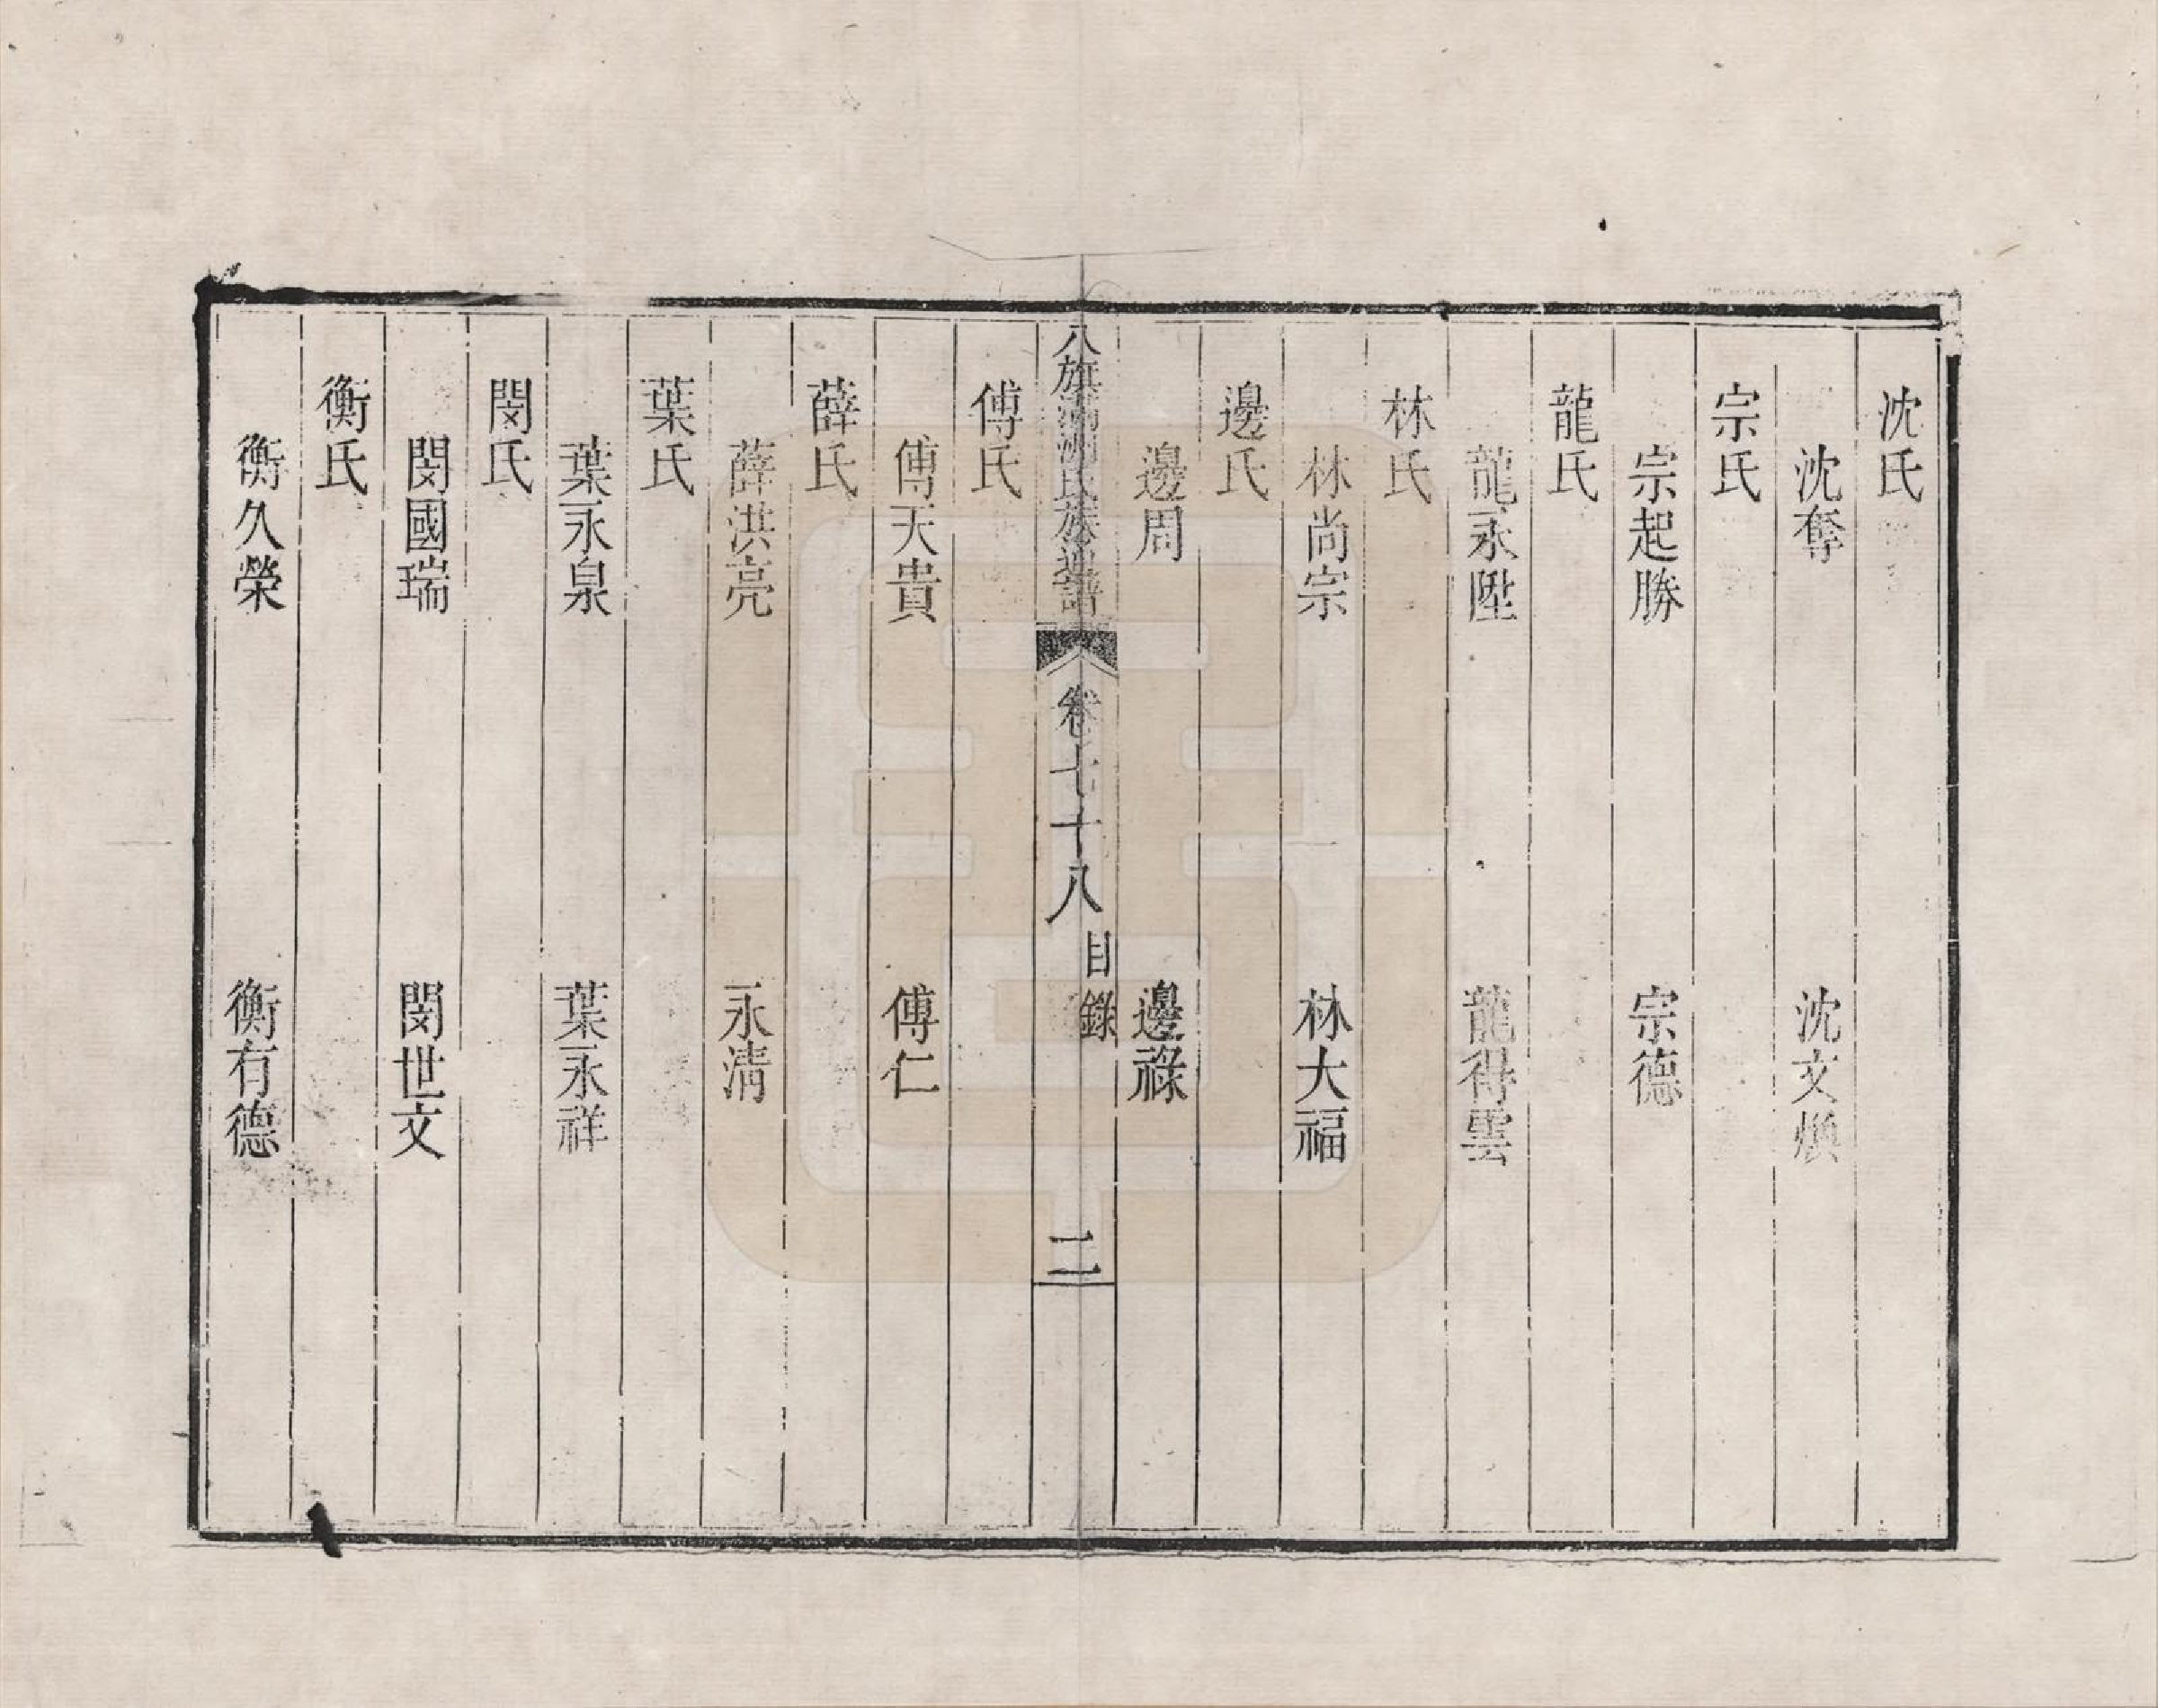 沈氏
沈奪 沈文煥
宗氏
宗起勝 宗德
龍氏
龍永陞 龍得雲
林氏
林尚宗 林大福
邊氏
邊周 邊祿
八旗滿洲氏族通譜 卷七十八 目錄 二
傅氏
傅天貴 傅仁
薛氏
薛洪亮 永清
葉氏
葉永泉 葉永祥
閔氏
閔國瑞 閔世文
衡氏
衡久榮 衡有德